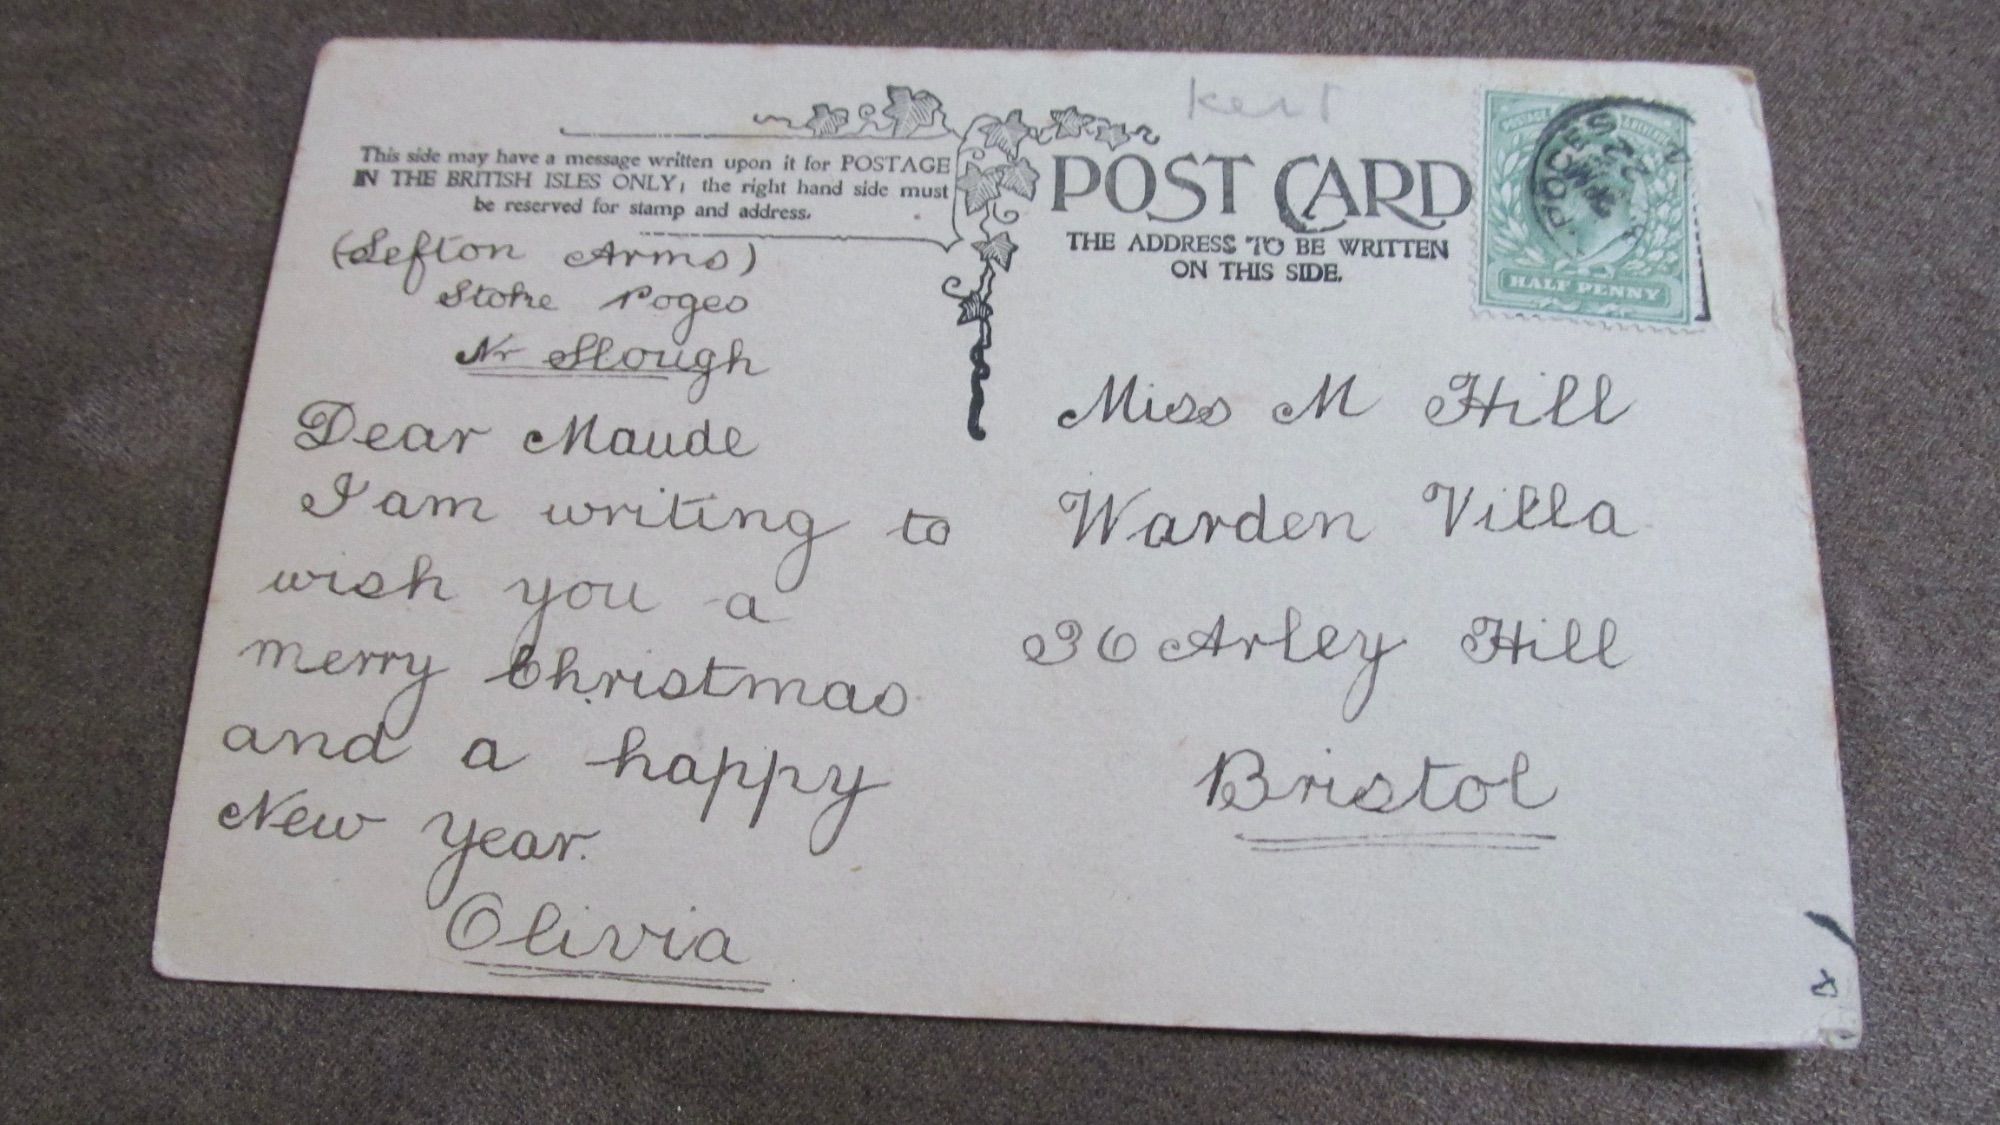 This side may have a message written upon it for POSTAGE
IN THE BRITISH ISLES ONLY; the right hand side must
be reserved for stamp and address.
(Sefton Arms)
Stoke Poges
Nr Slough
Dear Maude
I am writing to
wish you a
merry Christmas
and a happy
New Year.
Olivia
Kent
POST CARD
THE ADDRESS TO BE WRITTEN
ON THIS SIDE.
POSTAGE
HALF PENNY
POGES
Miss M Hill
Warden Villa
36 Arley Hill
Bristol